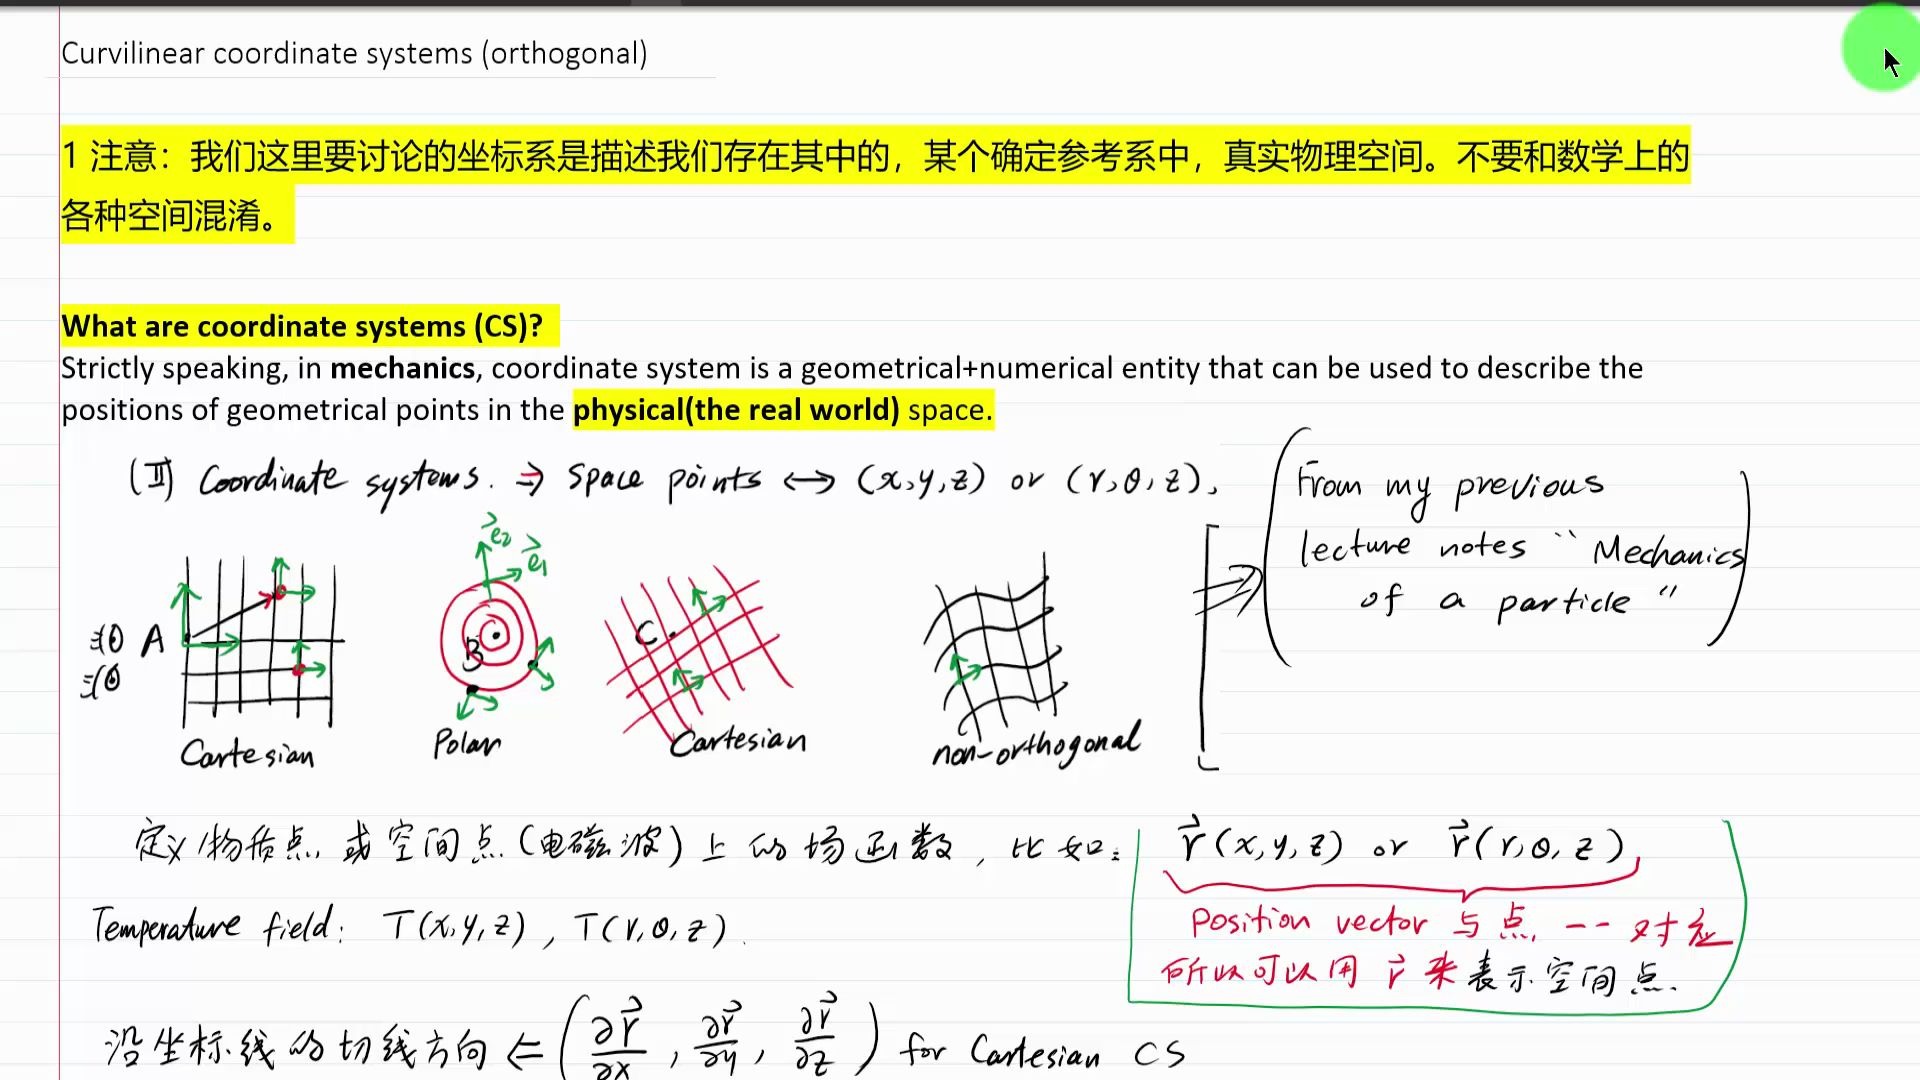 Curvilinear coordinate systems (orthogonal)
1 注意：我们这里要讨论的坐标系是描述我们存在其中的，某个确定参考系中，真实物理空间。不要和数学上的
各种空间混淆。
What are coordinate systems (CS)?
Strictly speaking, in mechanics, coordinate system is a geometrical+numerical entity that can be used to describe the
positions of geometrical points in the physical(the real world) space.
(II) Coordinate systems. ⇒ Space points ↔ (x,y,z) or (r,θ,z),
From my previous
lecture notes "Mechanics
of a particle"
e₂ e₁
A B C
Cartesian Polar Cartesian non-orthogonal
定义物质点或空间点(电磁波)上的场函数，比如： r⃗(x,y,z) or r⃗(r,θ,z),
Position vector 与点 一一对应
Temperature field: T(x,y,z), T(r,θ,z).
所以可以用 r⃗ 来表示空间点.
沿坐标线的切线方向 ⇐ (∂r⃗/∂x, ∂r⃗/∂y, ∂r⃗/∂z) for Cartesian CS